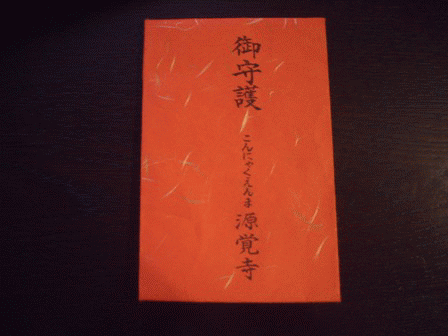 御守護
こんにゃくえんま 源覚寺